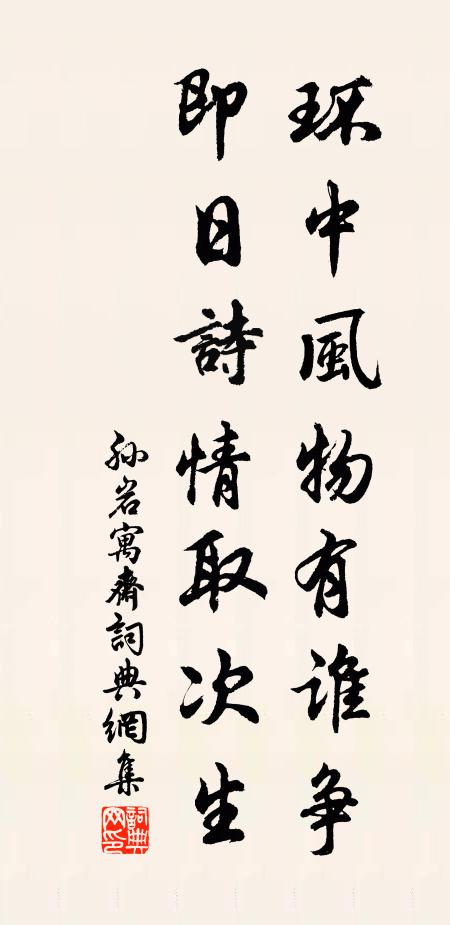 环中風物有誰争
即日詩情取次生
孙岩寓齋詞典網集
詞典網印